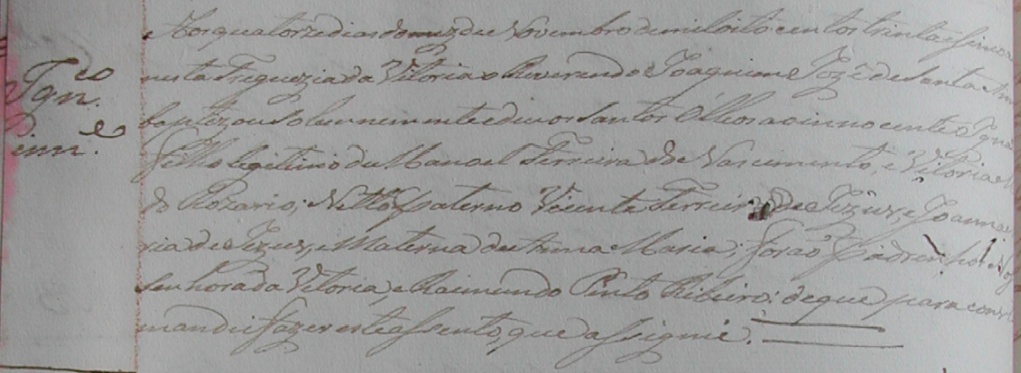 Ign.co
inn.e
Aos quatorze dias do mez de Novembro de mil oito centos trinta e sinco
nesta Freguezia da Vitoria o Reverendo Joaquim Jozé de Santa
baptizou solemnemente e deu os Santos Olleos ao innocente Igna
filho legitimo de Manoel Ferreira do Nascimento, e Vitoria
do Rozario; Netto paterno Vicente Ferreira de Jezus, e Joanna
ria de Jezus, e Materna de Anna Maria; forão Padrinhos N
Senhora da Vitoria, e Raimundo Pinto Ribeiro: de que para cons
mandei fazer este assento, que assignei.